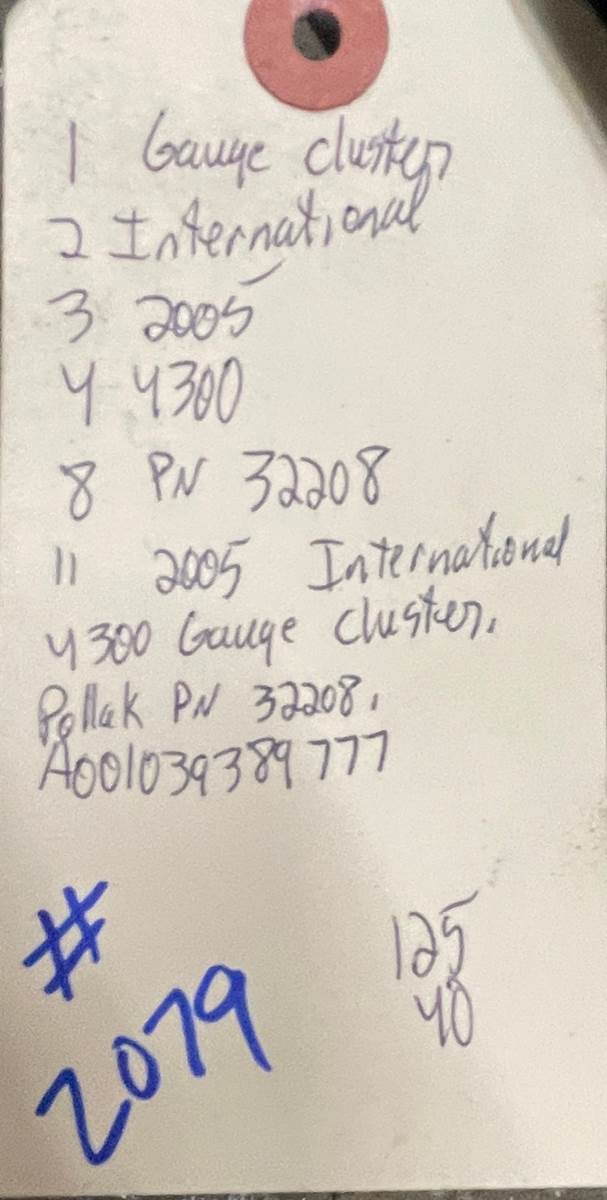 1 Gauge cluster
2 International
3 2005
4 4300
8 PN 32208
11 2005 International
4300 Gauge cluster.
Pollak PN 32208.
A001039389777
#
2079
125
40